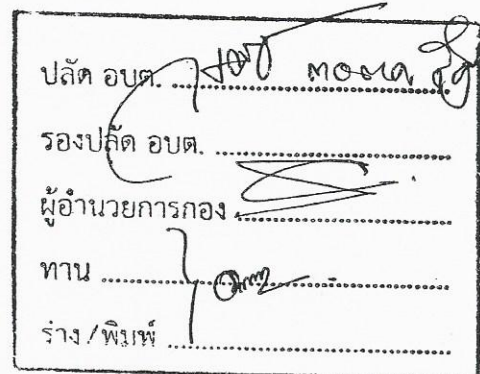 ปลัด อบต.
รองปลัด อบต.
ผู้อำนวยการกอง
ทาน
ร่าง/พิมพ์